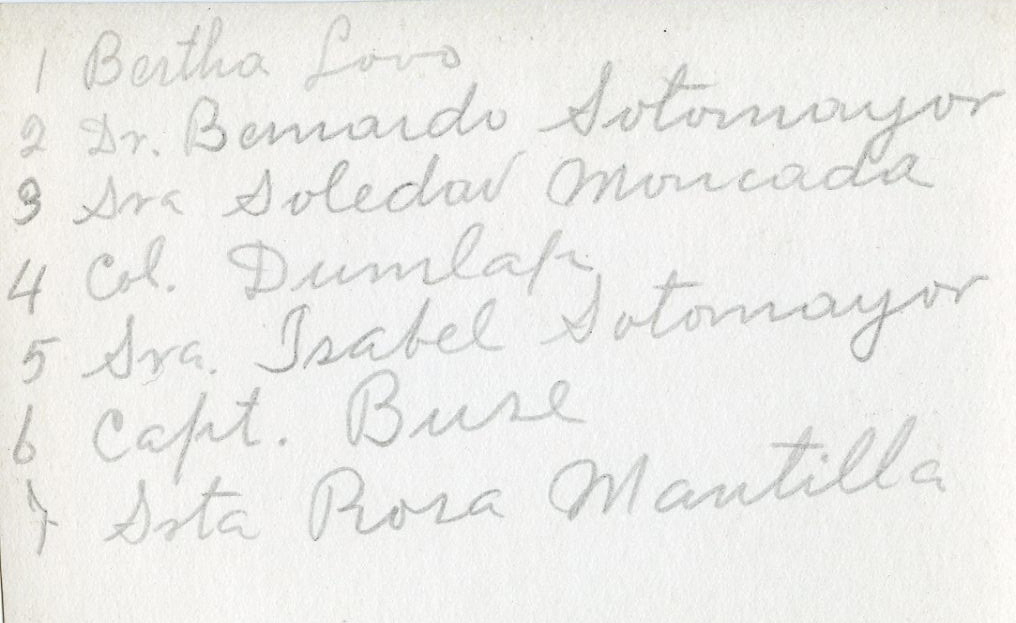 1 Bertha Lovo
2 Dr. Bernardo Sotomayor
3 Sra Soledad Moncada
4 Col. Dumlap
5 Sra. Isabel Sotomayor
6 Capt. Buse
7 Srta Rosa Mantilla